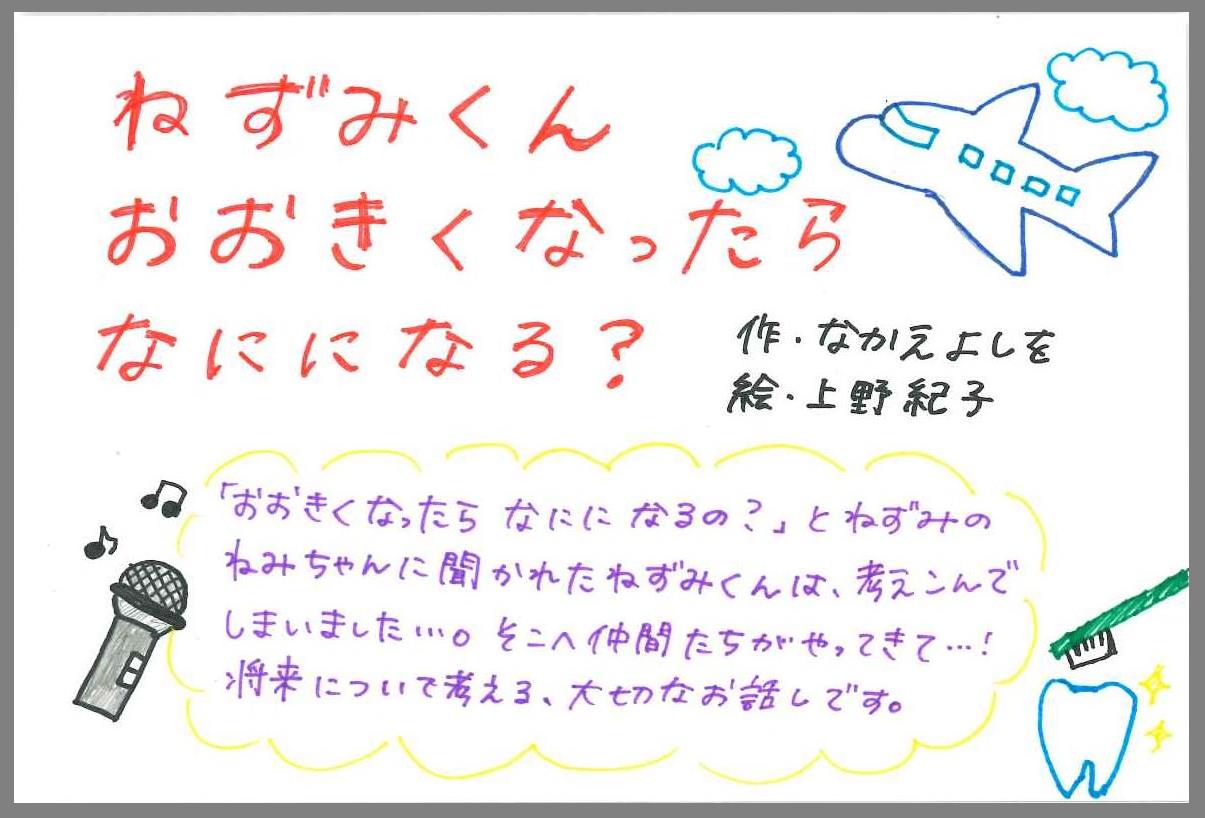 ねずみくん
おおきくなったら
なにになる?
作・なかえよしを
絵・上野紀子
「おおきくなったら なにに なるの?」とねずみの
ねみちゃんに聞かれたねずみくんは、考えこんで
しまいました…。そこへ仲間たちがやってきて…!
将来について考える、大切なお話しです。